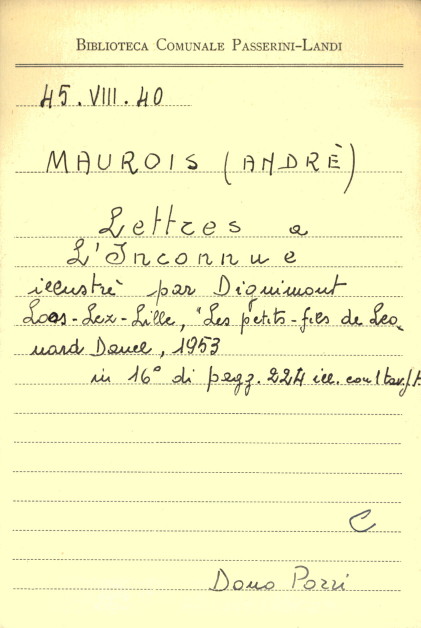 BIBLIOTECA COMUNALE PASSERINI-LANDI
45.VIII.40
MAUROIS (ANDRÈ)
Lettres a
L'Inconnue
illustrè par Dignimont
Loos-Lez-Lille, "Les petits-fils de Leo-
nard Danel, 1953
in 16° di pagg. 224 ill. con 1 tav. f.t
C
Dono Pozzi